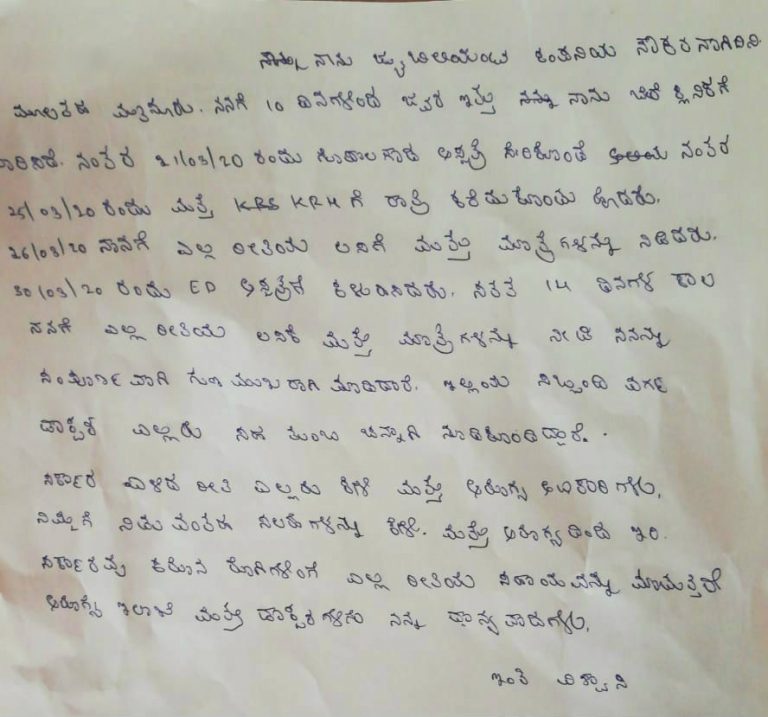 ನಾನು ಜ್ಯುಬಿಲಿಯಂಟ ಕಂಪನಿಯ ನೌಕರನಾಗಿದಿನಿ
ಮೂಲತಹ ಮೈಸೂರು. ನನಗೆ 10 ದಿನಗಳಿಂದ ಜ್ವರ ಇತ್ತು ನಾನು ಕ್ಲಿನಿಕಗೆ
ನಂತರ 21/03/20 ರಂದು ಗೋಪಾಲಗೌಡ ಆಸ್ಪತ್ರೆ ಸೇರಿಕೊಂಡೆ ನಂತರ
25/03/20 ರಂದು ಮತ್ತೆ KRH ಗೆ ರಾತ್ರಿ ಕರೆದುಕೊಂಡು ಹೋದರು.
26/03/20 ನನಗೆ ಎಲ್ಲ ರೀತಿಯ ಲಸಿಗೆ ಮತ್ತು ಮಾತ್ರೆಗಳನ್ನು ನಿಡಿದರು.
30/03/20 ರಂದು ED ಆಸ್ಪತ್ರೆಗೆ ಕಳುಹಿಸಿದರು. ಸತತ 14 ದಿನಗಳ ಕಾಲ
ನನಗೆ ಎಲ್ಲ ರೀತಿಯ ಲಸಿಕೆ ಮತ್ತು ಮಾತ್ರೆಗಳನ್ನು ನೀಡಿ ನನನ್ನು
ಸಂಪೂರ್ಣವಾಗಿ ಗುಣಮುಖರಾಗಿ ಮಾಡಿದಾರೆ. ಇಲ್ಲಿಯ ಸಿಬ್ಬಂದಿ ವರ್ಗ
ಡಾಕ್ಟರ ಎಲ್ಲರು ಸಹ ತುಂಬ ಚನ್ನಾಗಿ ನೂಡಿಕೊಂಡಿದ್ದಾರೆ.
ಸರ್ಕಾರ ಹೇಳಿದ ರೀತಿ ಎಲ್ಲರು ಕೇಳಿ ಮತ್ತು ಆರೋಗ್ಯ ಅಧಿಕಾರಿಗಳು,
ನಿಮ್ಮಗೆ ನಿಡುವಂತಹ ಸಲಹೆಗಳನ್ನು ಕೇಳಿ. ಮತ್ತು ಆರೋಗ್ಯದಿಂದ ಇರಿ.
ಸರ್ಕಾರವು ಕರೊನ ರೋಗಿಗಳಿಂಗೆ ಎಲ್ಲ ರೀತಿಯ ಸಹಾಯವನ್ನು ಮಾಡುತ್ತಿದೆ
ಆರೋಗ್ಯ ಇಲಾಖೆ ಮತ್ತು ಡಾಕ್ಟರಗಳಿಗು ನನ್ನ ಧಾನ್ಯವಾದಗಳು,
ಇಂತಿ ವಿಶ್ವಾಸಿ